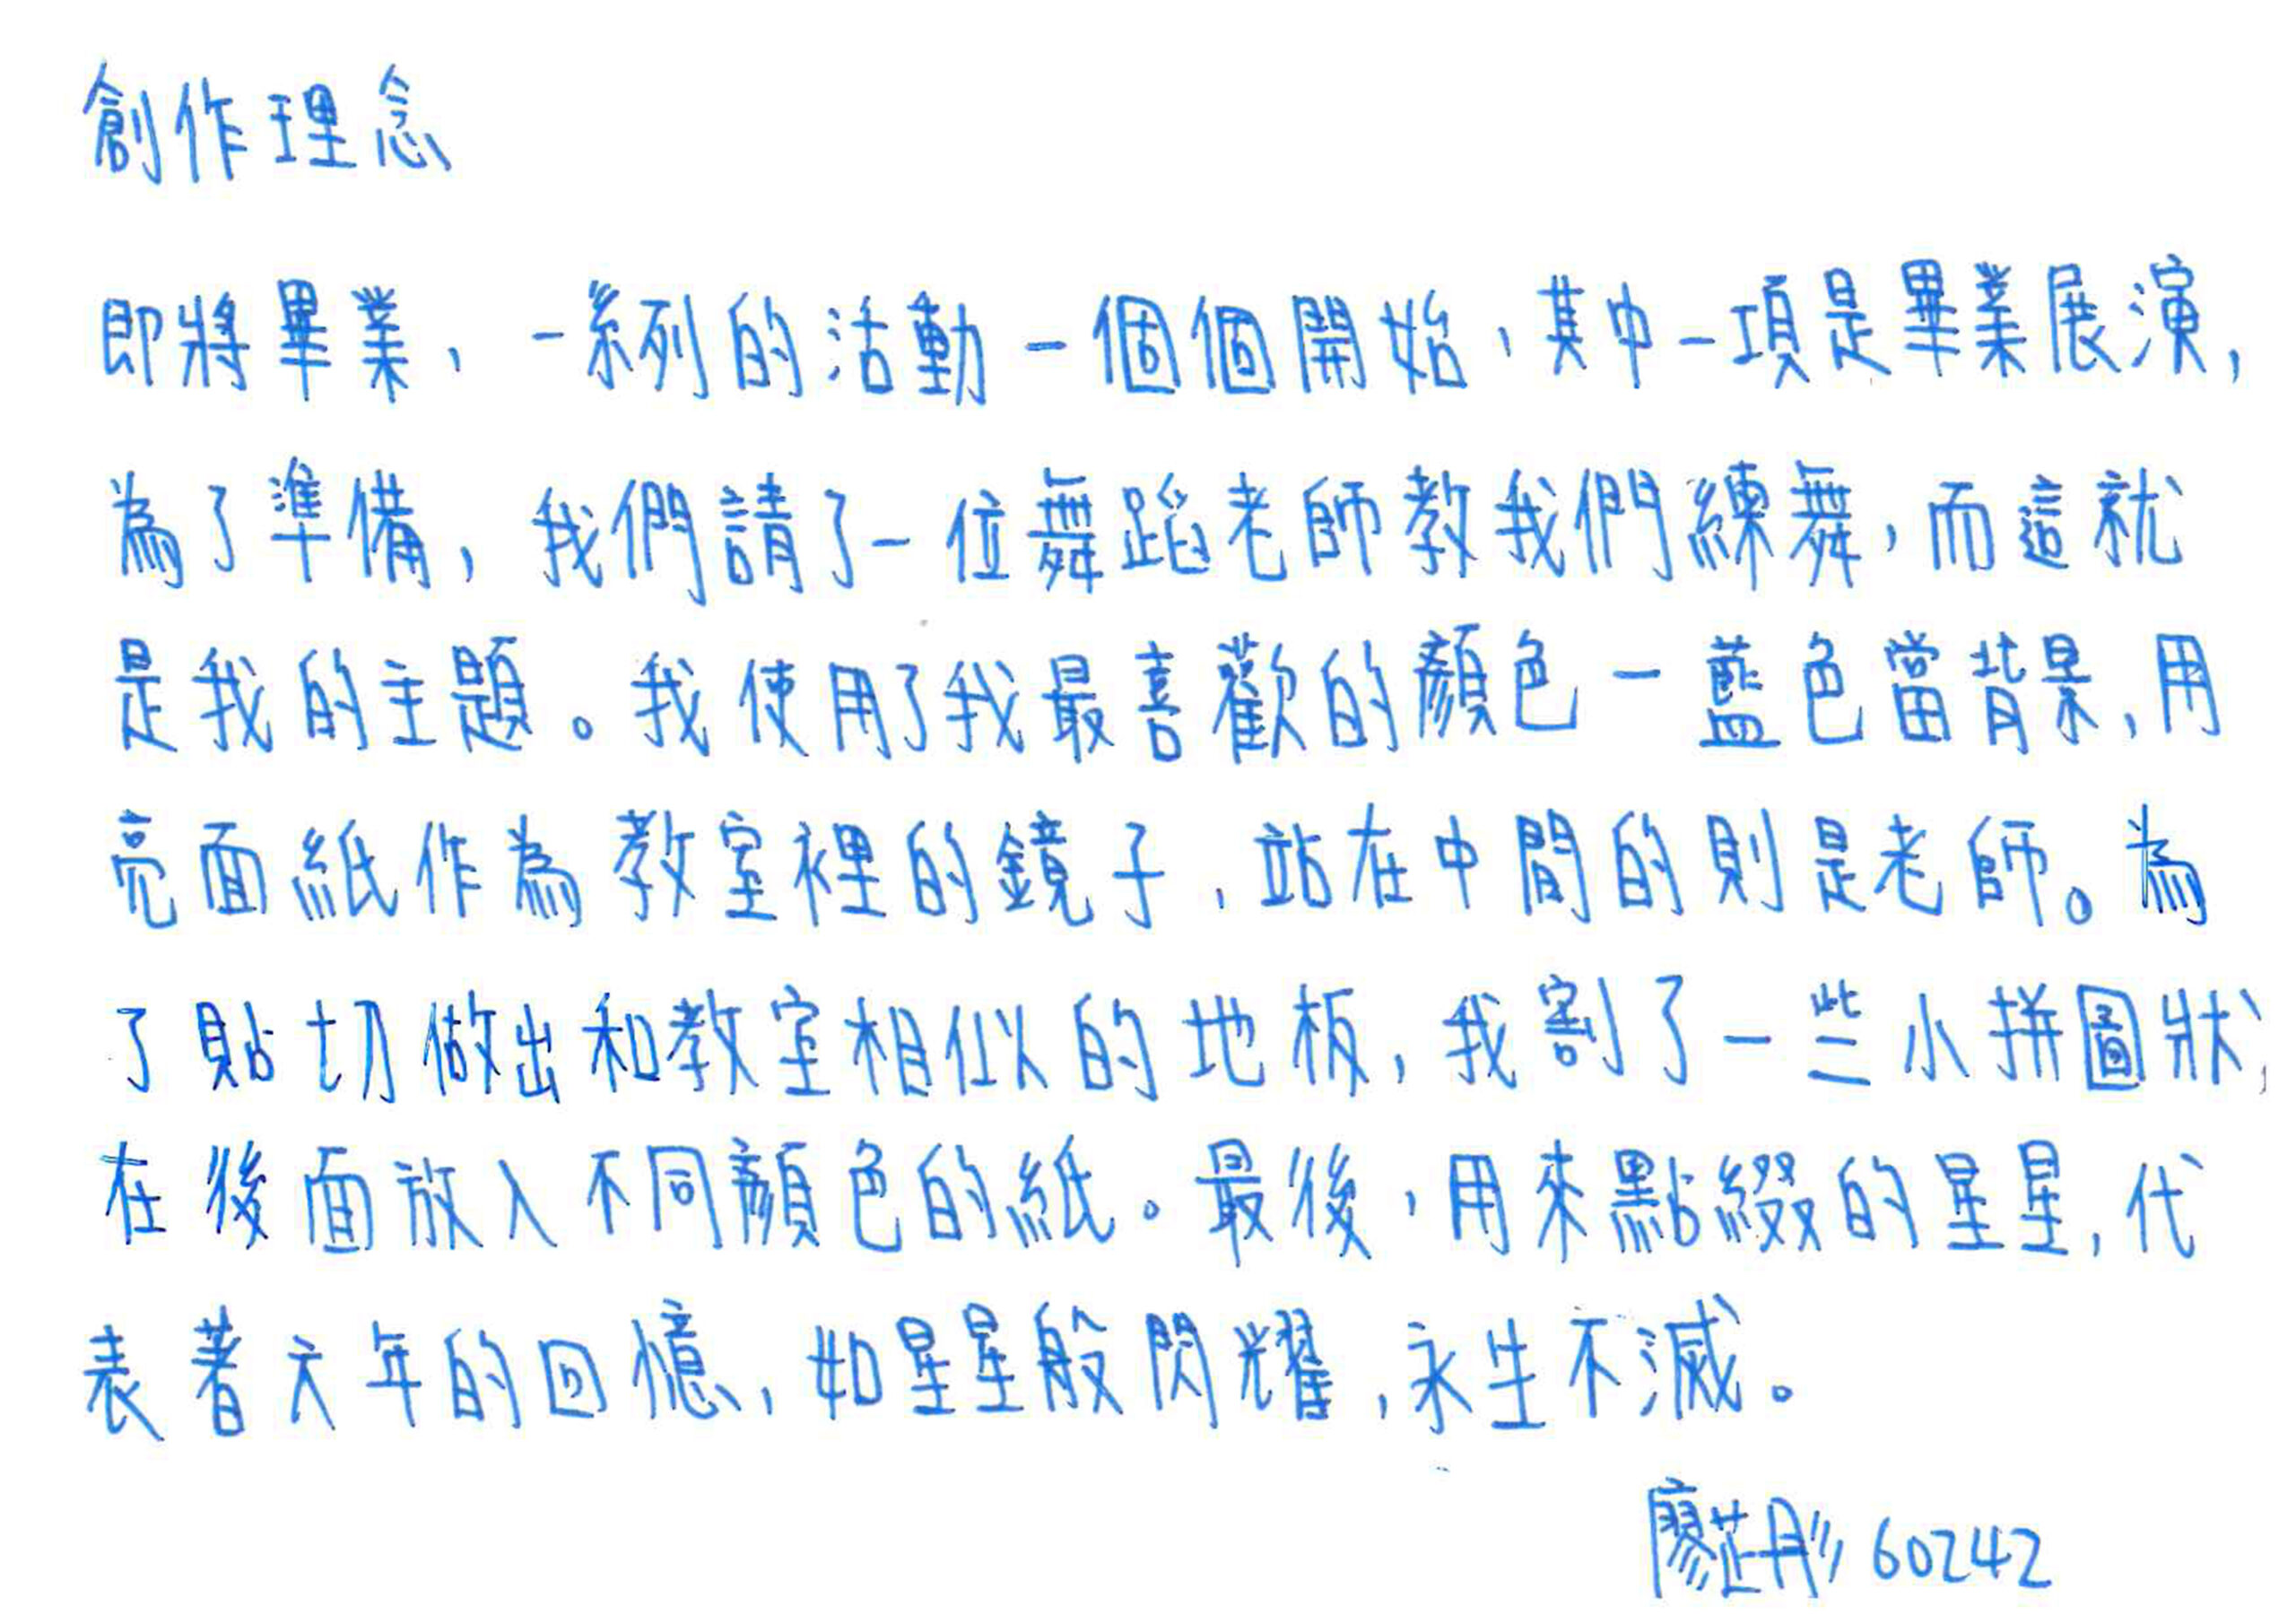 創作理念
即將畢業，一系列的活動一個個開始，其中一項是畢業展演，
為了準備，我們請了一位舞蹈老師教我們練舞，而這就
是我的主題。我使用了我最喜歡的顏色－藍色當背景，用
亮面紙作為教室裡的鏡子，站在中間的則是老師。為
了貼切做出和教室相似的地板，我割了一些小拼圖狀，
在後面放入不同顏色的紙。最後，用來點綴的星星，代
表著六年的回憶，如星星般閃耀，永生不滅。
廖芷彤 60242